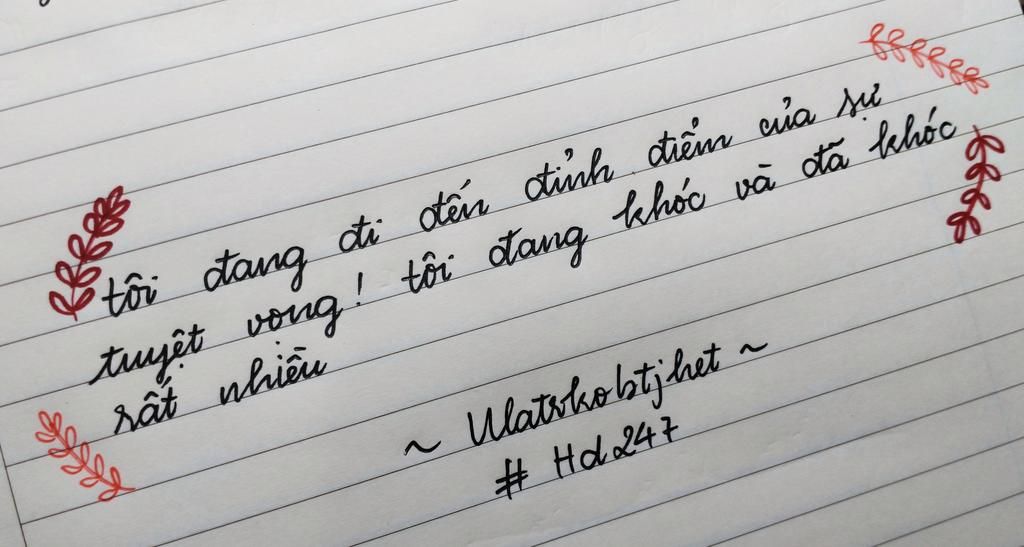 tôi đang đi đến đỉnh điểm của sự
tuyệt vọng! tôi đang khóc và đã khóc
rất nhiều
~ Ulatrkobtjhet ~
# Hd247